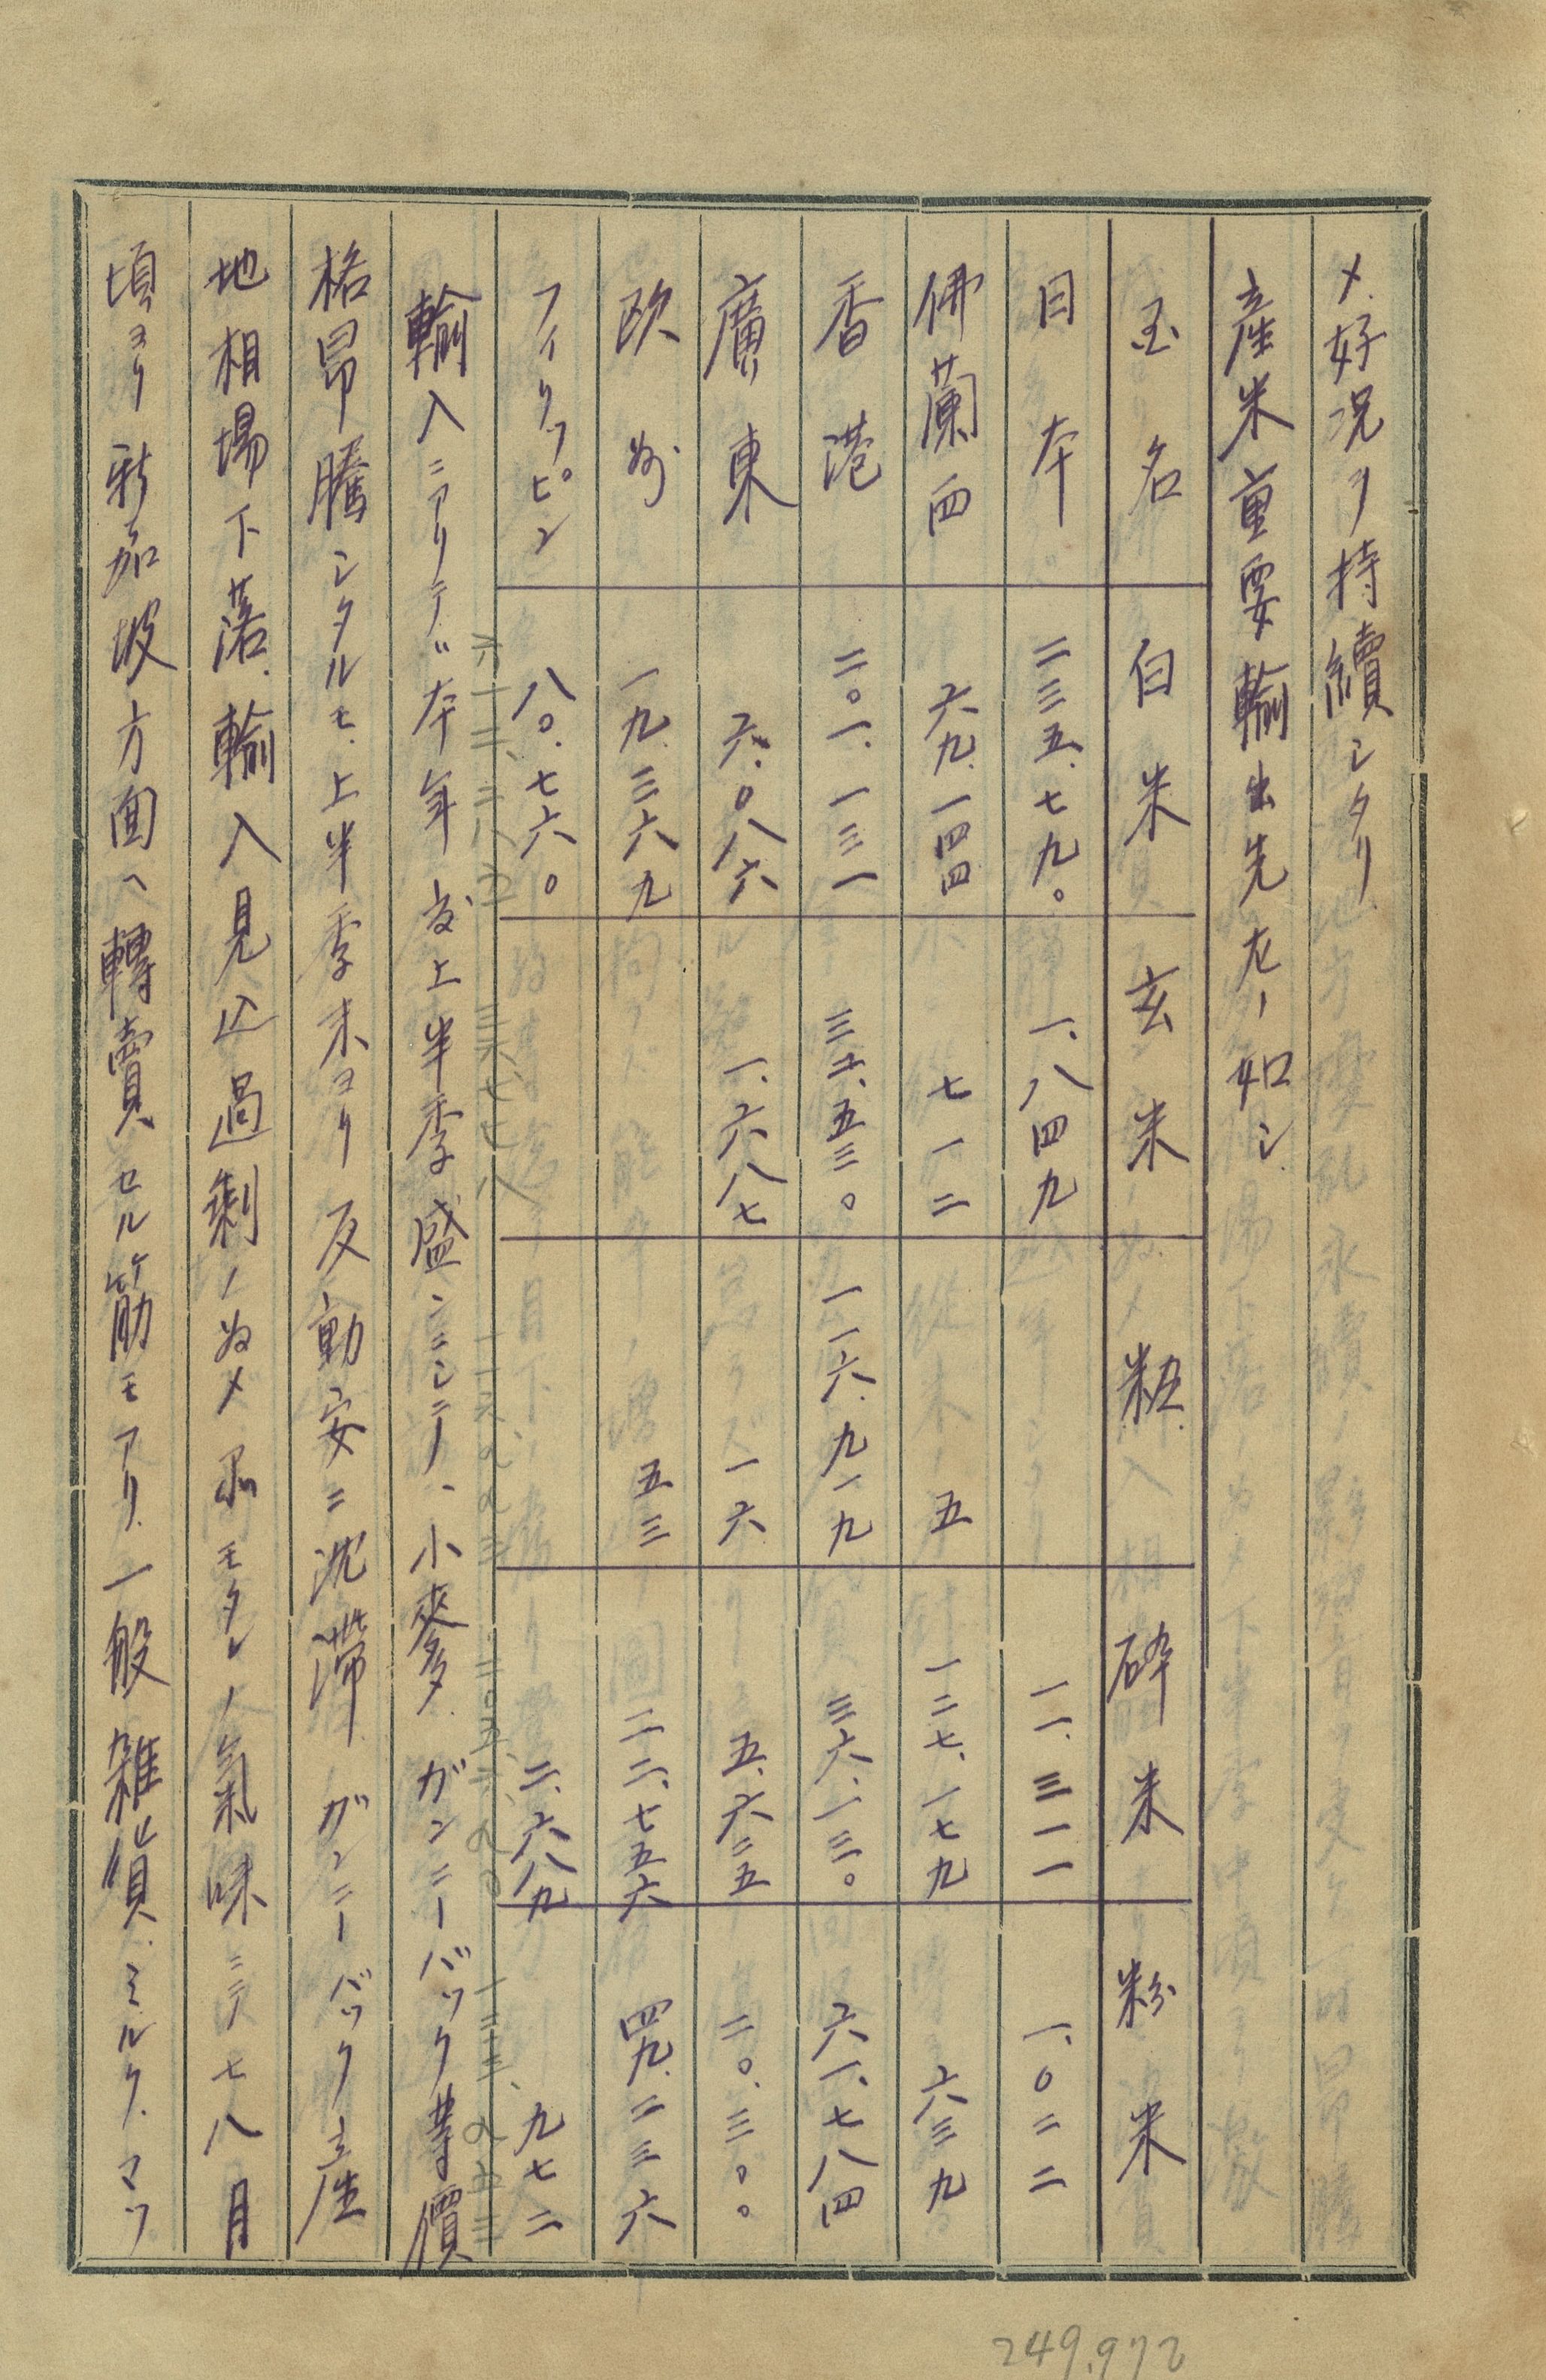 メ、好況ヲ持續シタリ
産米重要輸出先左ノ如シ
国名 白米 玄米 粗 砕米 粉米
日本 二三五、七九〇 一、八四九 一一、三一一 一、〇二二
佛蘭西 六九、一四四 七一二 五 一二七、一七九 六三九
香港 二〇一、一三一 三五三〇 一一六、九一九 三六、一三〇 六一、七八四
廣東 六、〇八六 一、六八七 一六 五、六三五 二〇、三〇〇
欧州 一九、三六九 五三 二二、七五六 四九、二三六
フイリツピン 八〇、七六〇 二、六八九 九七二
輸入ニアリテハ本年度上半季盛ンニシテ、小麥、ガンニーバツク等價
格昂騰シタルモ、上半季末ヨリ反動安ニ沈滞、ガンニーバツク産
地相場下落、輸入見込過剰ノ為メモタレノ氣味ニテ七八月
頃ヨリ新加坡方面ヘ轉賣セル筋モアリ、一般雑貨、ミルク、マツ
249,972